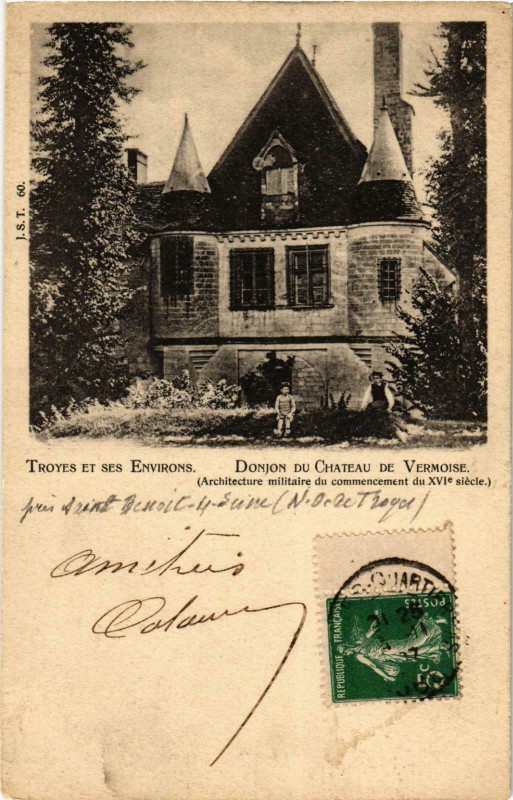 J.S.T. 60.
TROYES ET SES ENVIRONS. DONJON DU CHATEAU DE VERMOISE.
(Architecture militaire du commencement du XVIe siècle.)
près Saint Benoit-s-Seine (N-O-de Troyes)
Amitiés
REPUBLIQUE FRANÇAISE
POSTES
5c
QUARTI
21 25